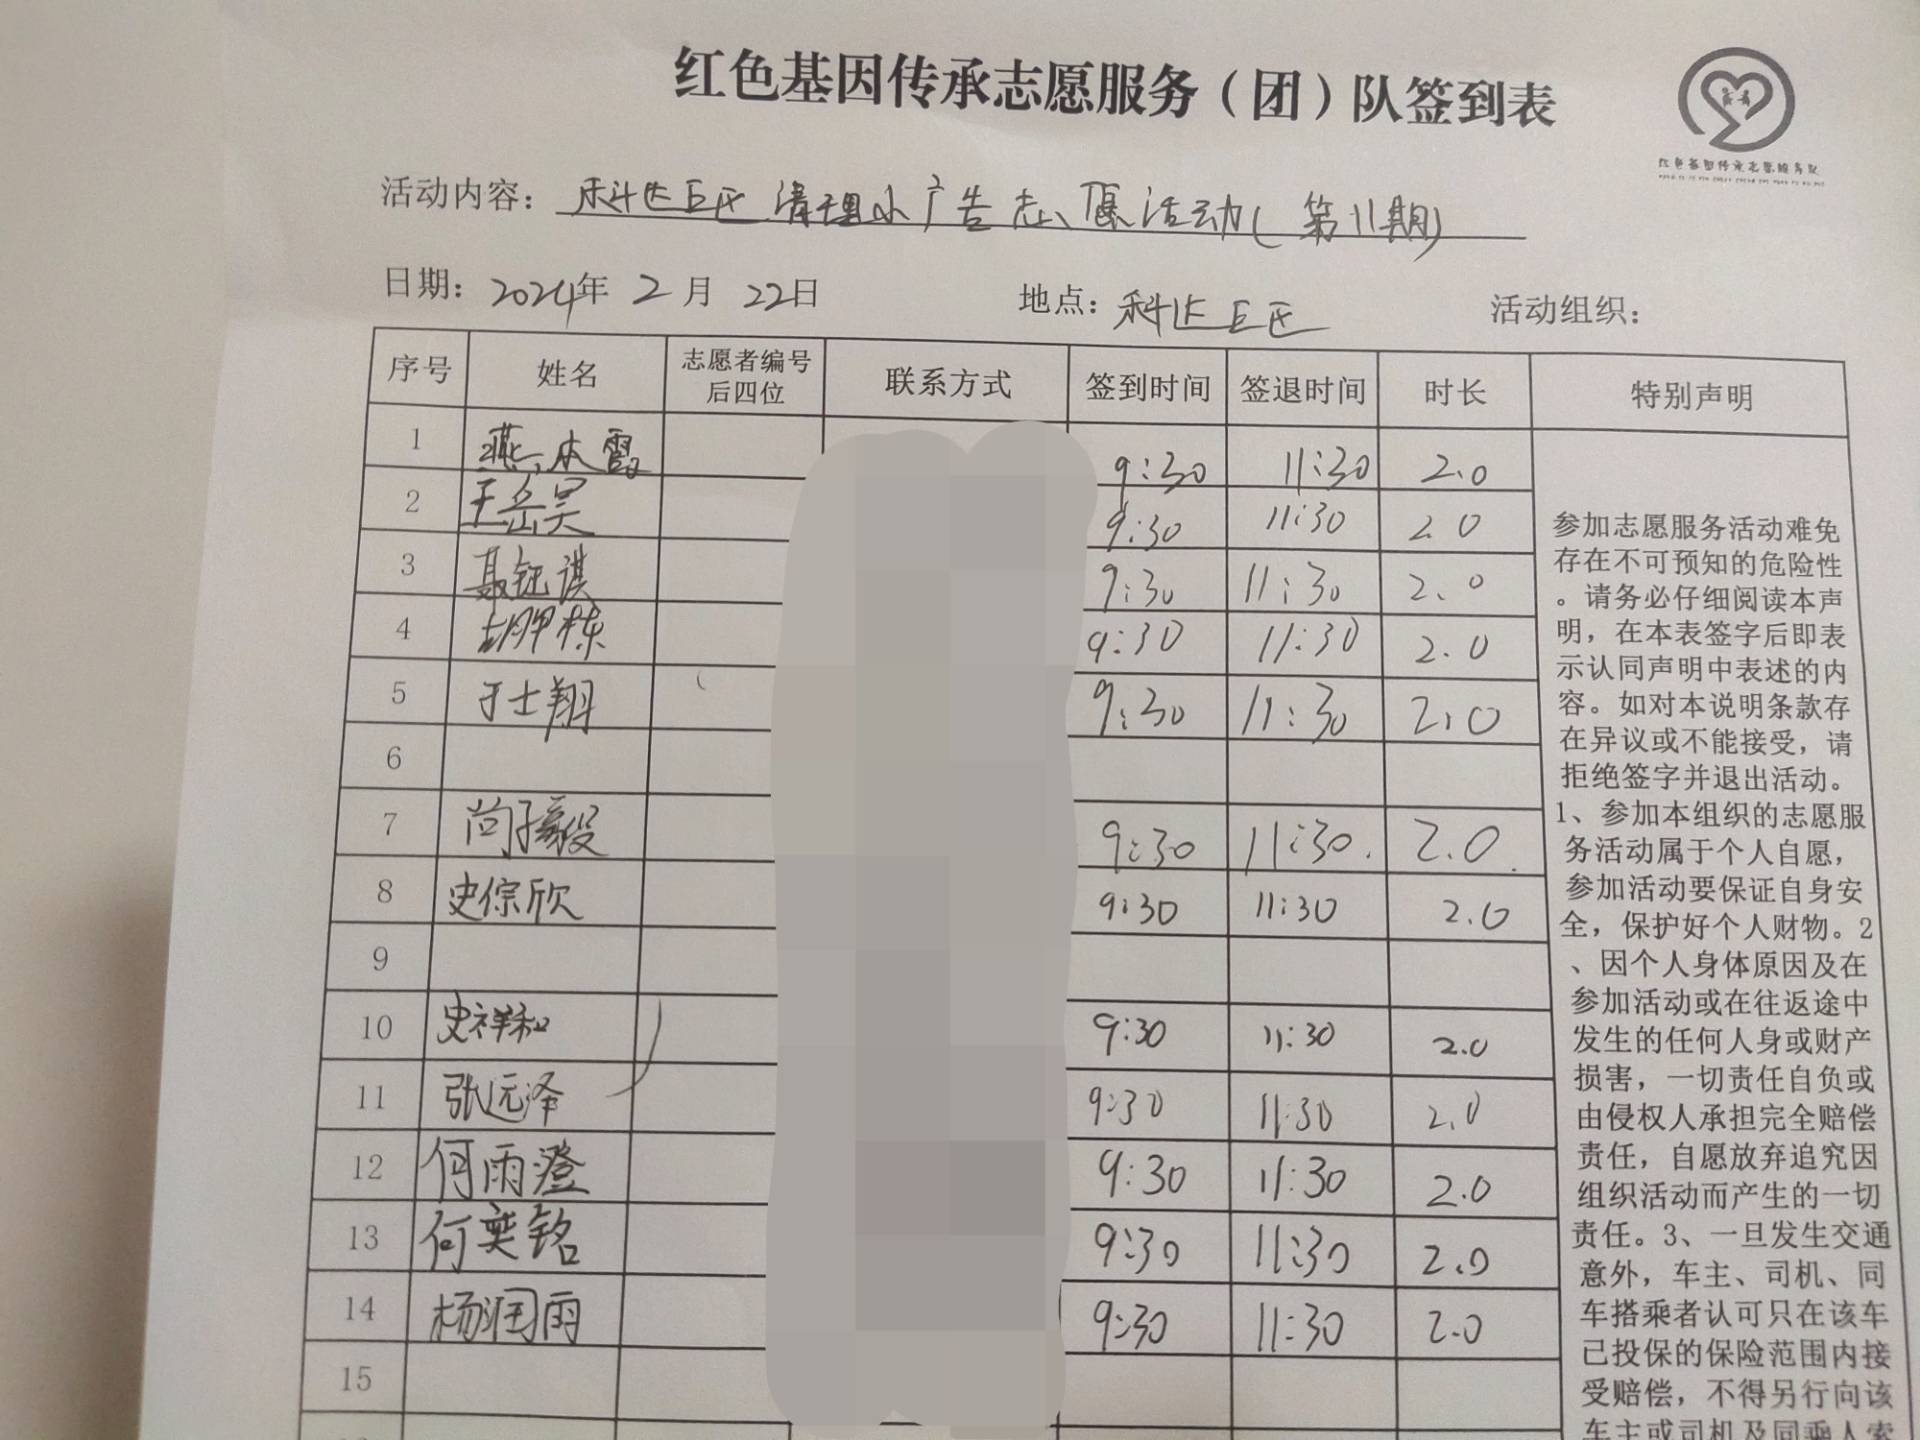 红色基因传承志愿服务（团）队签到表
红色基因传承志愿服务队
活动内容：科达巨区清理小广告志愿活动(第11期)
日期：2024年2月22日 地点：科达巨区 活动组织：
序号 姓名 志愿者编号后四位 联系方式 签到时间 签退时间 时长 特别声明
1 燕本霞 9:30 11:30 2.0
2 王岳昊 9:30 11:30 2.0
3 聂钰淇 9:30 11:30 2.0
4 胡栋 9:30 11:30 2.0
5 于士翔 9:30 11:30 2.0
6
7 尚子豪 9:30 11:30. 2.0.
8 史倧欣 9:30 11:30 2.0
9
10 史祥和 9:30 11:30 2.0
11 张远泽 9:30 11:30 2.0
12 何雨澄 9:30 11:30 2.0
13 何奕铭 9:30 11:30 2.0
14 杨润雨 9:30 11:30 2.0
15
参加志愿服务活动难免
存在不可预知的危险性
。请务必仔细阅读本声
明，在本表签字后即表
示认同声明中表述的内
容。如对本说明条款存
在异议或不能接受，请
拒绝签字并退出活动。
1、参加本组织的志愿服
务活动属于个人自愿，
参加活动要保证自身安
全，保护好个人财物。2
、因个人身体原因及在
参加活动或在往返途中
发生的任何人身或财产
损害，一切责任自负或
由侵权人承担完全赔偿
责任，自愿放弃追究因
组织活动而产生的一切
责任。3、一旦发生交通
意外，车主、司机、同
车搭乘者认可只在该车
已投保的保险范围内接
受赔偿，不得另行向该
车主或司机及同乘人索